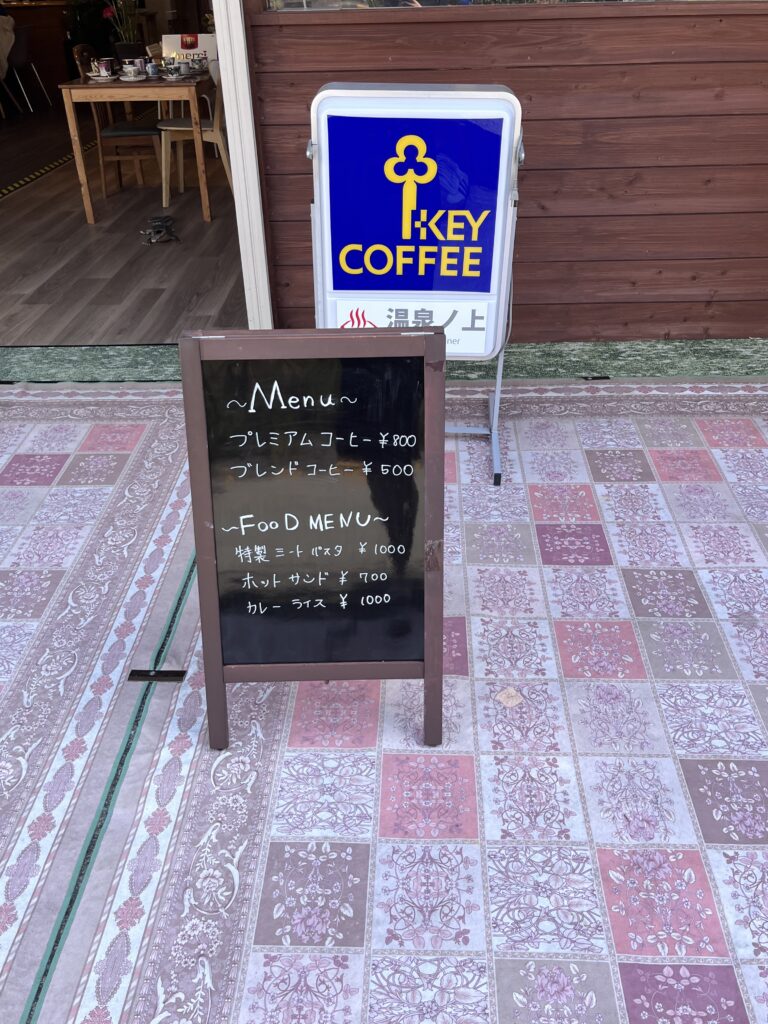 merci
KEY
COFFEE
温泉ノ上
~Menu~
プレミアム コーヒー ¥800
ブレンド コーヒー ¥500
~FooD MENU~
特製 ミート パスタ ¥1000
ホット サンド ¥ 700
カレー ライス ¥ 1000